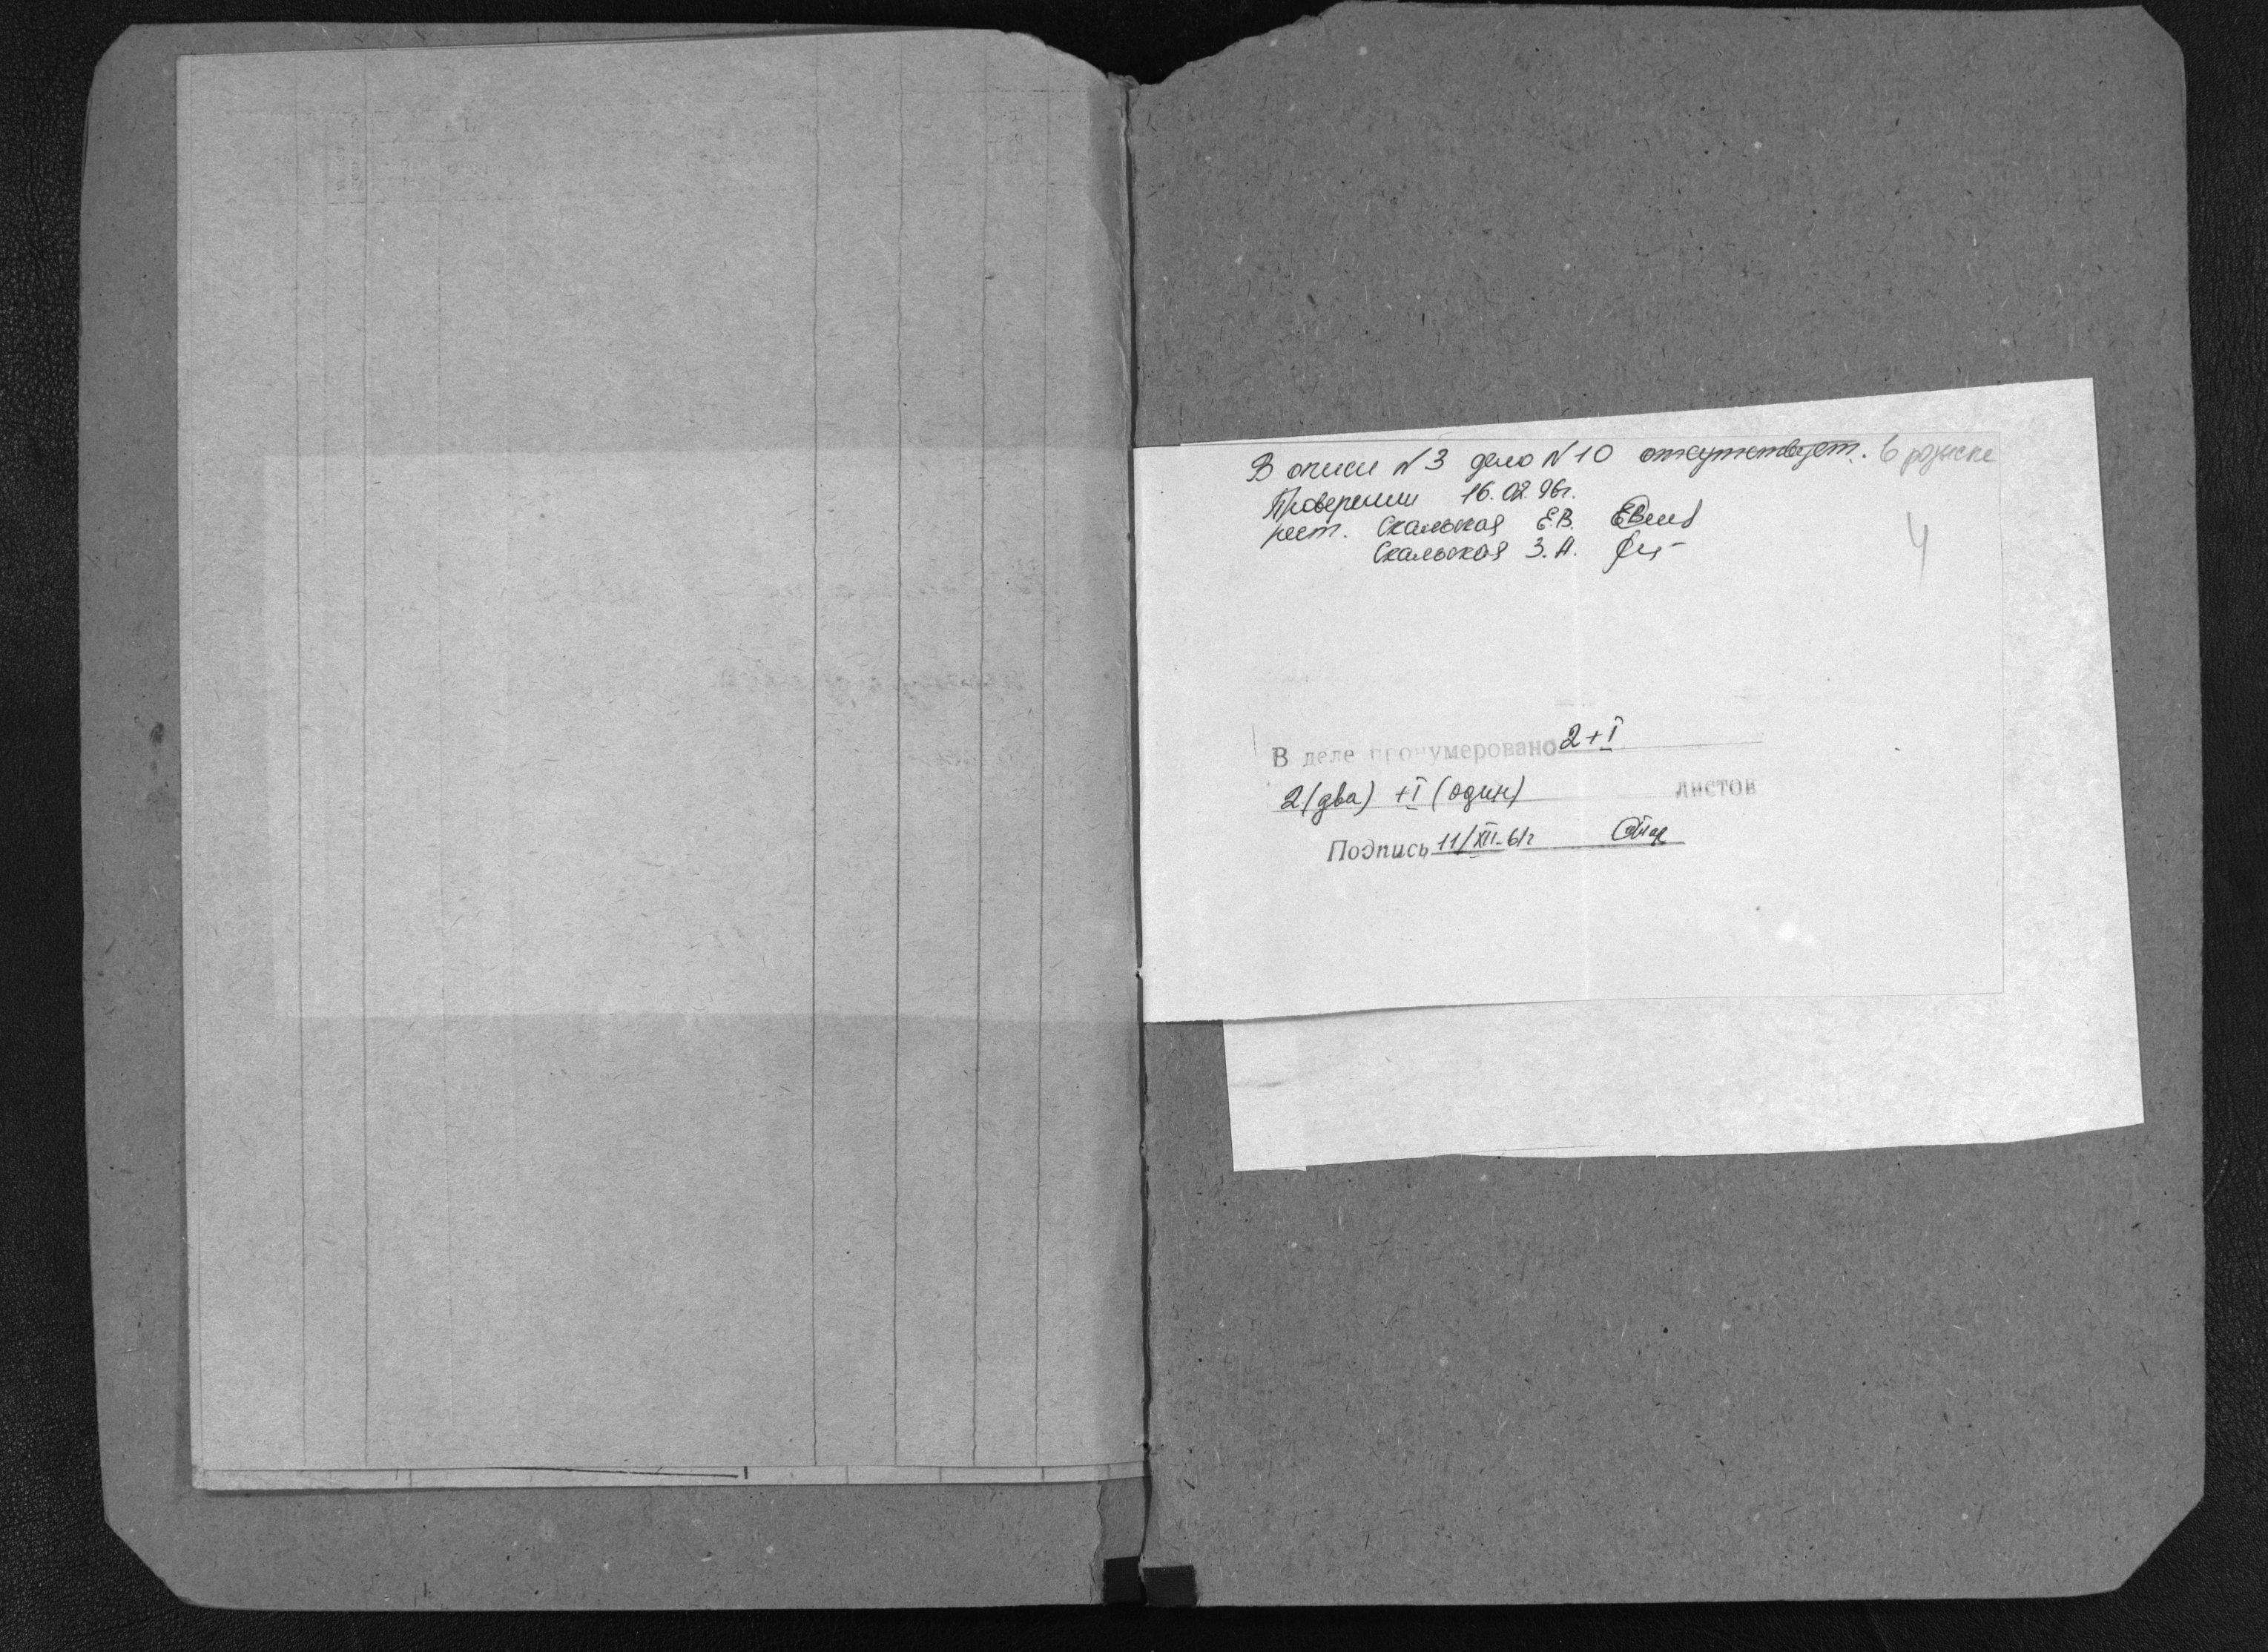 В описи N 3 дело N 10 отсутствует. в розыске
Проверили 16.02.96г.
рест. Скальская Е.В.
Скальская З.А.
4
В деле пронумеровано 2+I
2 (два) + I (один) листов
Подпись 11/XII-61г